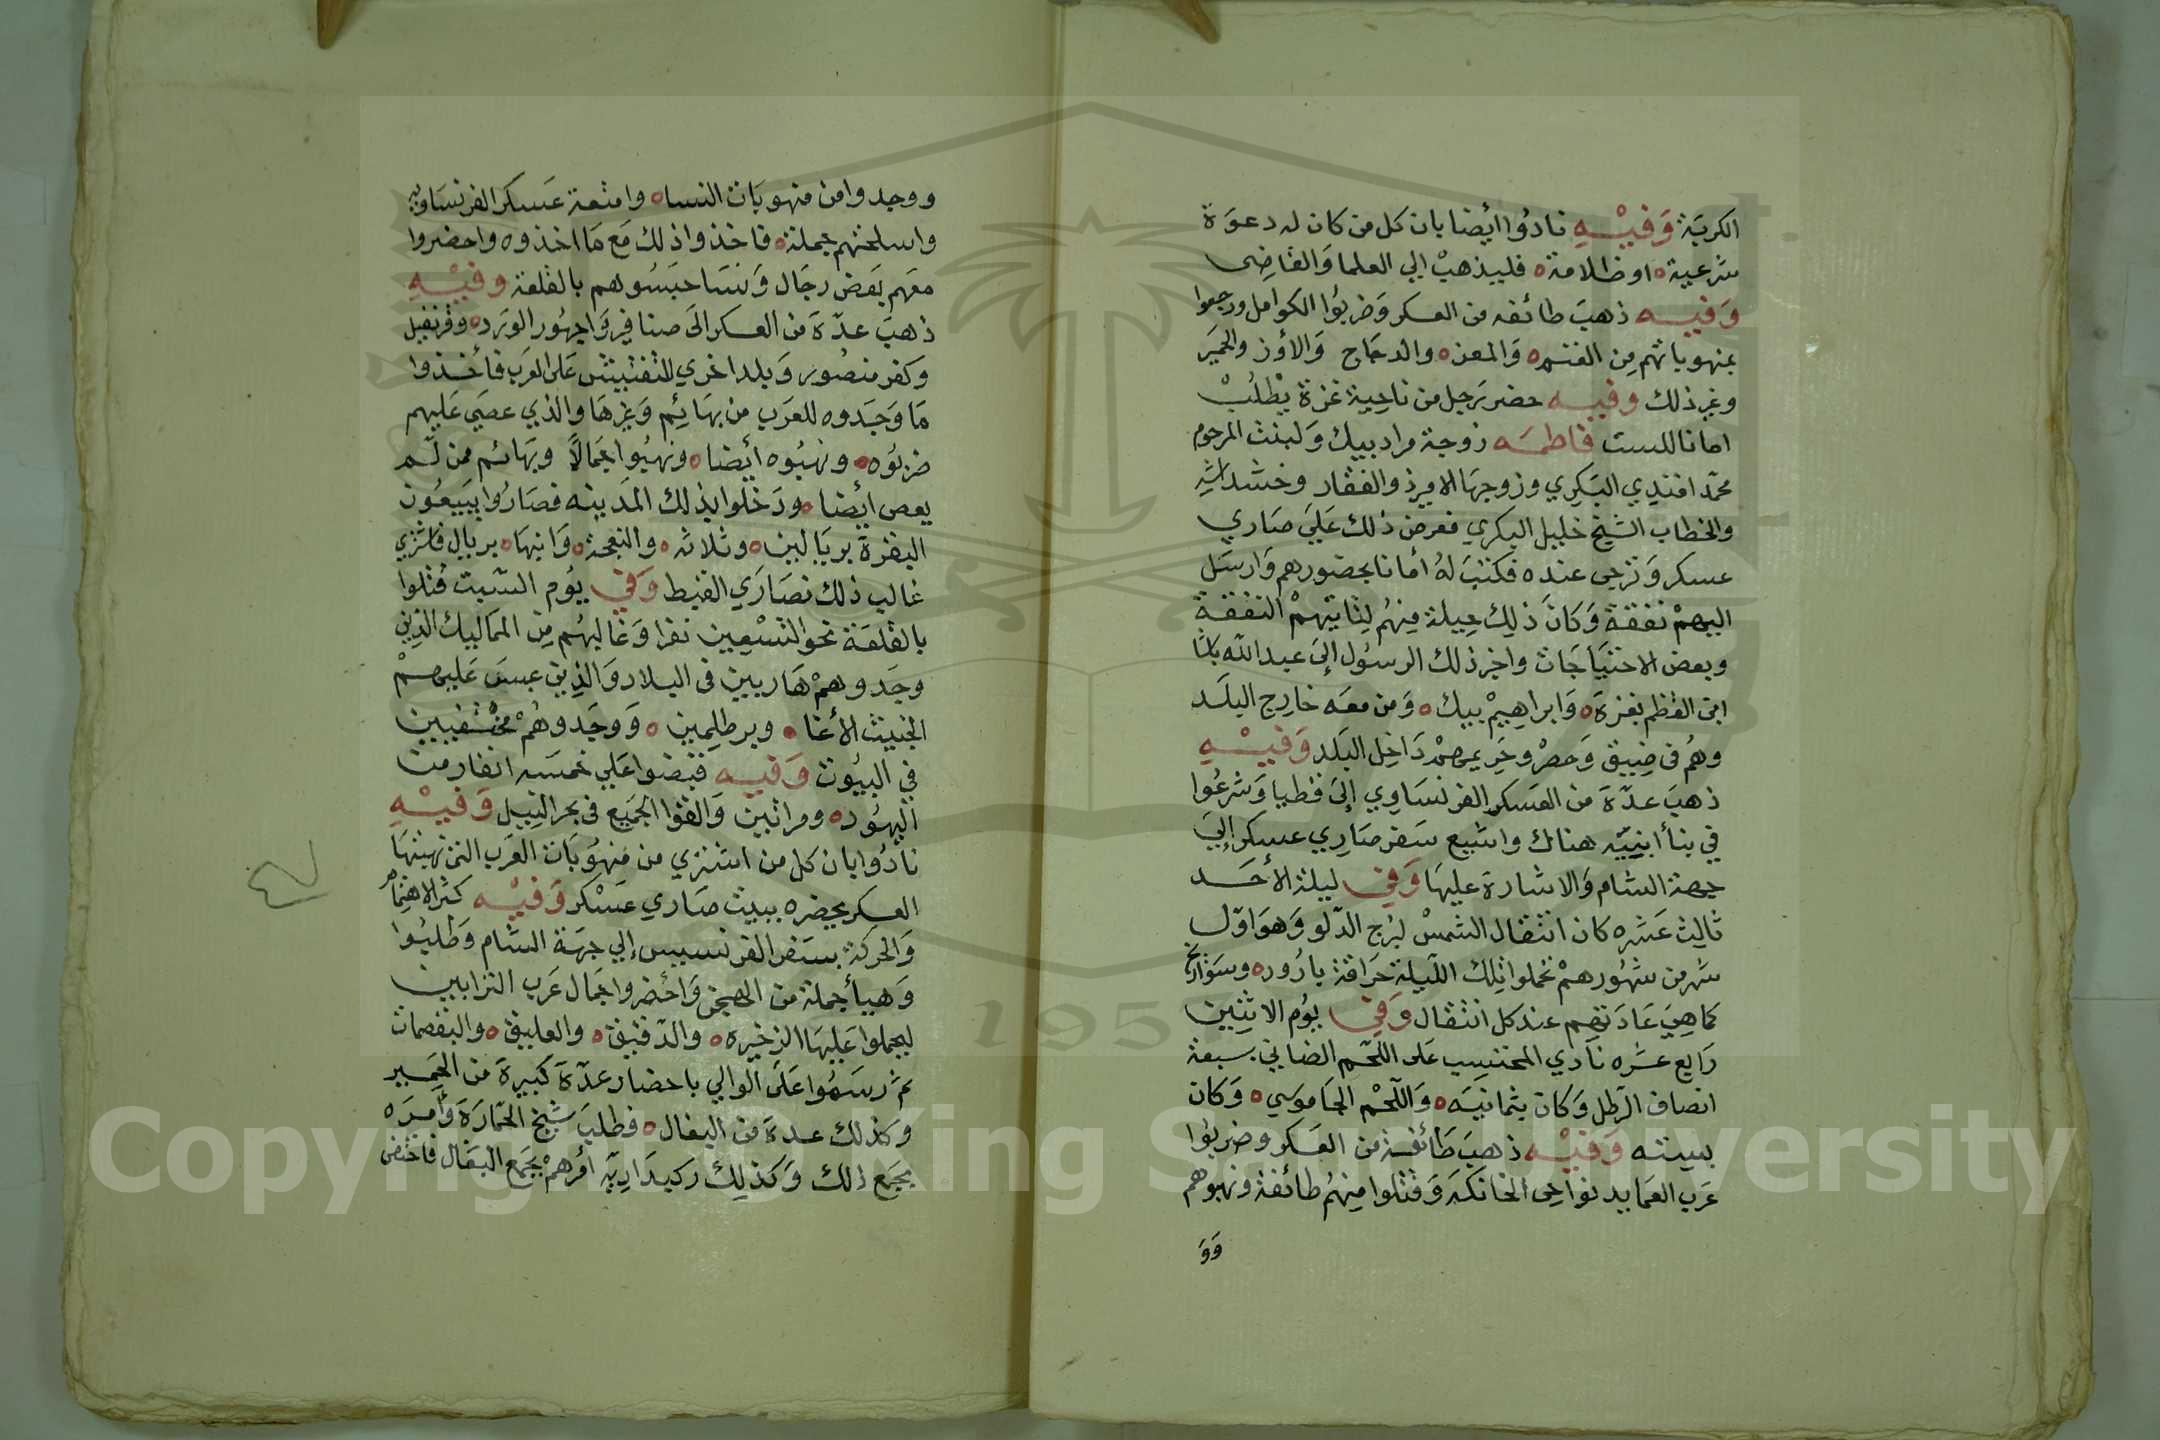 الكريَة وَفيْـــهِ نادُوا أيضا بان كل من كان له دعوَة
شرعية ه اوظلامة ه فليذهبْ الي العلما وَالقاضِى
وَفيـــه ذهبَ طائفه من العسكر وَضربُوا الكوامل ورجعوا
بمنهوباتهم مِن الغنم ه وَالمعز ه والدجاج وَالأوز والحمَير
وغير ذلك وفيـــه حضر رَجل من ناحِية غزة يَطْلُبْ
امانا للست فاطمَه زوجة مراد بيك وَلبنت المرحوم
محمّد افندي البَكِري وزوجهَا الامير ذو الفقار وخشداشِهِ
والخطاب الشيخ خليل البكري فعرض ذلك عَليَ صَاري
عسكر وَترجي عنده فكتبَ لهُ أمانا بحضورهم وَارسَل
اليهمْ نفقة وَكانَ ذلِك حِيلة مِنهُم لِتَاتيَهمْ النفقة
وبعض الاحتيَاجَات واخبر ذلك الرسُول إلىَ عبد الله باشا
ابن العَظم بغزة ه وَابراهِيمْ بيك ه وَمن معَه خارِج البلَد
وهُم في ضِيق وَحصْر وحَرِيمهمْ دَاخِل البَلد وَفيـْــهِ
ذهبَ عدّةَ من العَسكر الفرنسَاوِي إلىَ قطيا وَشرعُوا
في بنأ ابنِيّه هناك واشيع سَفر صَارِي عسكر إليَ
جهة الشام وَالاشارة عليهَا وَفي ليلة الأحَــد
ثالِث عَشره كان انتقال الشمسْ لبُرج الدّلو وَهوَ اوّل
شهر من شهُورهمْ فعملوا تلِك اللّيلة حَراقة بارُوره وسوَاريخ
كما هِيَ عَادَتهِم عند كل انتقال وَفِي يَوُم الاثنِين
رَابِع عشره نادي المحتسِب عَلى اللّحَم الضاني بسبعة
انصاف الرّطل وَكان بثمانيَه ه وَاللّحْم الجَاموسي ه وَكان
بستته وَفيْــه ذهبَ طَائفة من العَسكر وضربُوا
عَرب العَمايد نواحِى الخانكَه وَقتلوا مِنهُم طائفة ونهبوهم
وَوَ
ووجدوا من منهوبَات النسا ه وامتعة عَسكر الفرنسَاويه
واسلحتهم جملة ه فاخذوا ذلك مَع مَا اخذوه واحضروا
معَهم بَعض رجَال وَنسَا حبَسُوهم بالقلعة وفيْــهِ
ذهبَ عدّةَ من العسكر الىَ صنافِير وَاجهُور الورَد ه وقرنفيل
وكفر منصُور وَبلد اخري للتفتييش عَلى العَرب فأخذوا
مَا وَجَدوه للعَرب من بهَائِم وَغيرهَا والذي عصَي عَليهم
ضربُوه ه ونهَبُوه أيضا ه ونهبُوا جَمالاً وبهَائم ممن لَم
يعص ايضا ه ودَخلوا بذلك المَدينه فصَارُوا يبيعُون
البقرَة بريَالين ه وثلاثه ه والنعجة ه وَابنهَا ه بريال فاشتري
غالب ذلك نصَارَي القبط وَفي يوُم السّبت قُتلوا
بالقلعَة نحو التسْعِين نفرا وَغَالبهُم مِن المماليك الذِين
وجَدوهمْ هَاربين في البلاد وَالذِين عبسَ عَليهمْ
الخبيث الأغا ه وبرطلِمِين ه وَوجَدوهُمْ مختفيين
في البيُوت وَفيـــه قبَضوا عَلي خمسَه انفار من
اليهُود ه وومراتين وَالقوا الجمَيع في بحر النِيل وَفيْــهِ
نادُوا بان كل من اشتري من مَنهُوبَات العَرب التي نهبتهَا
العسكر يحضره ببيت صَاري عَسْكر وَفيْــه كثر الاهتمام
وَالحركة بسَفر الفرنسيس إلي جهَة الشام وَطلبُوا
وَهيأ جملة من الهجن وَاحضروا جَمال عَرب الترابين
ليحملوا عَليهَا الذخيره ه والدّقيق ه والعليق ه والبقصمات
ثم رسَمُوا عَلَى الوالي باحضار عدّة كَبيرة من الحَمِير
وَكذلك عدة من البغال ه فطلبَ شيخ الحَمّارَة وَأمرَه
بجمَع ذلك وَكذلِك ركيدَاريّة امُرهمْ بجمَع البَغال فاختفي